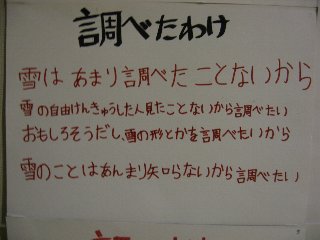 調べたわけ
雪は あまり調べた ことないから
雪の自由けんきゅうした人見たことないから調べたい
おもしろそうだし、雪の形とかを調べたいから
雪のことはあんまり知らないから調べたい